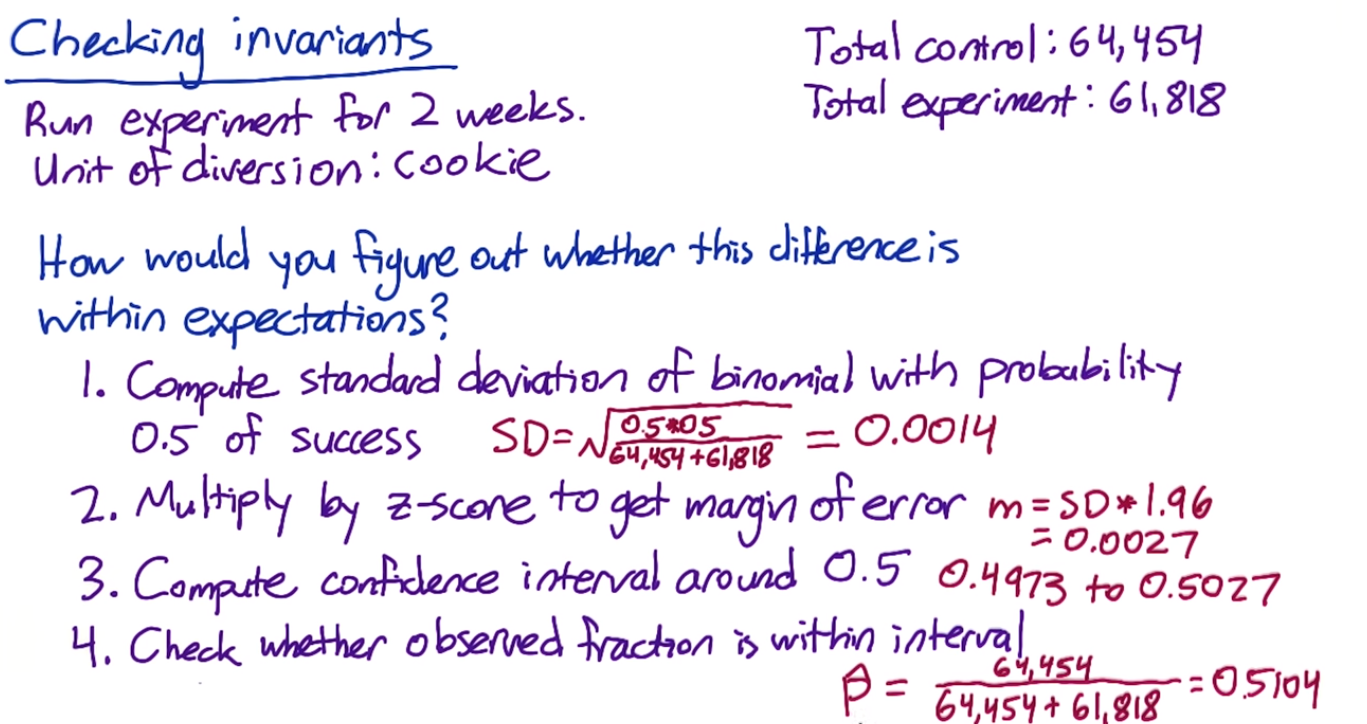 Checking invariants
Total control: 64,454
Total experiment: 61,818
Run experiment for 2 weeks.
Unit of diversion: cookie
How would you figure out whether this difference is
within expectations?
1. Compute standard deviation of binomial with probability
0.5 of success SD = √(0.5*05 / 64,454+61,818) = 0.0014
2. Multiply by z-score to get margin of error m = SD * 1.96
= 0.0027
3. Compute confidence interval around 0.5 0.4973 to 0.5027
4. Check whether observed fraction is within interval
p̂ = 64,454 / 64,454 + 61,818 = 0.5104